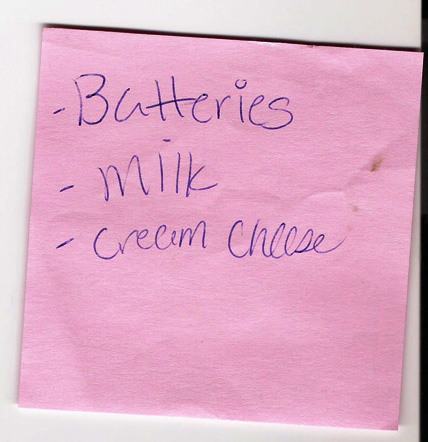 - Batteries
- milk
- cream cheese